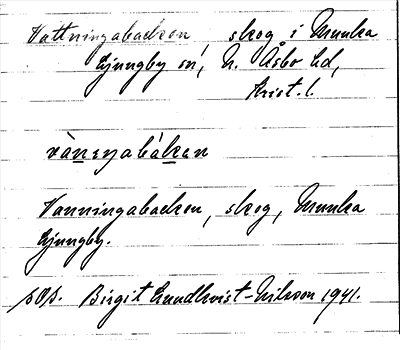 Vattningabacken skog i Munka
Ljungby sn, N. Åsbo hd,
Krist. l.
vàneŋabàken
Vanningabacken, skog, Munka
Ljungby.
Birgit Lundkvist-Nilsson 1941.